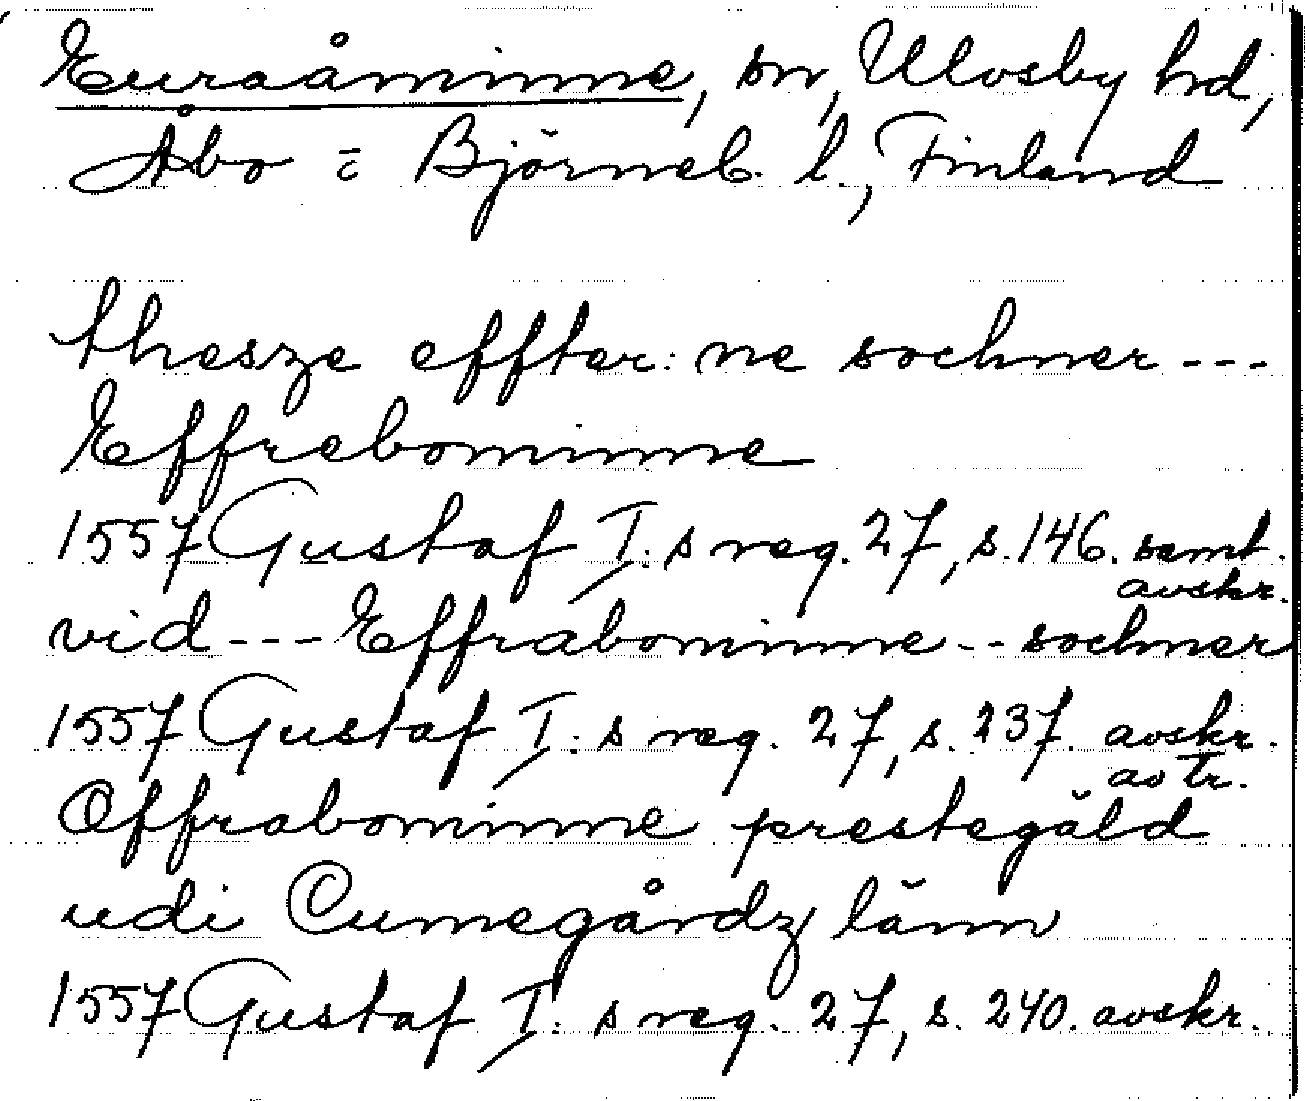 Euraåminne, sn, Ulvsby hd,
Åbo ⁊c Björneb. l., Finland
thesze effter:ne sochner ---
Effrabominne
1557 Gustaf I:s reg. 27, s. 146. samt.
avskr.
vid --- Effrabominne -- sochner
1557 Gustaf I:s reg. 27, s. 237. avskr.
av tr.
Offrabominne prestegäld
udi Cumegårdz länn
1557 Gustaf I:s reg. 27, s. 240. avskr.